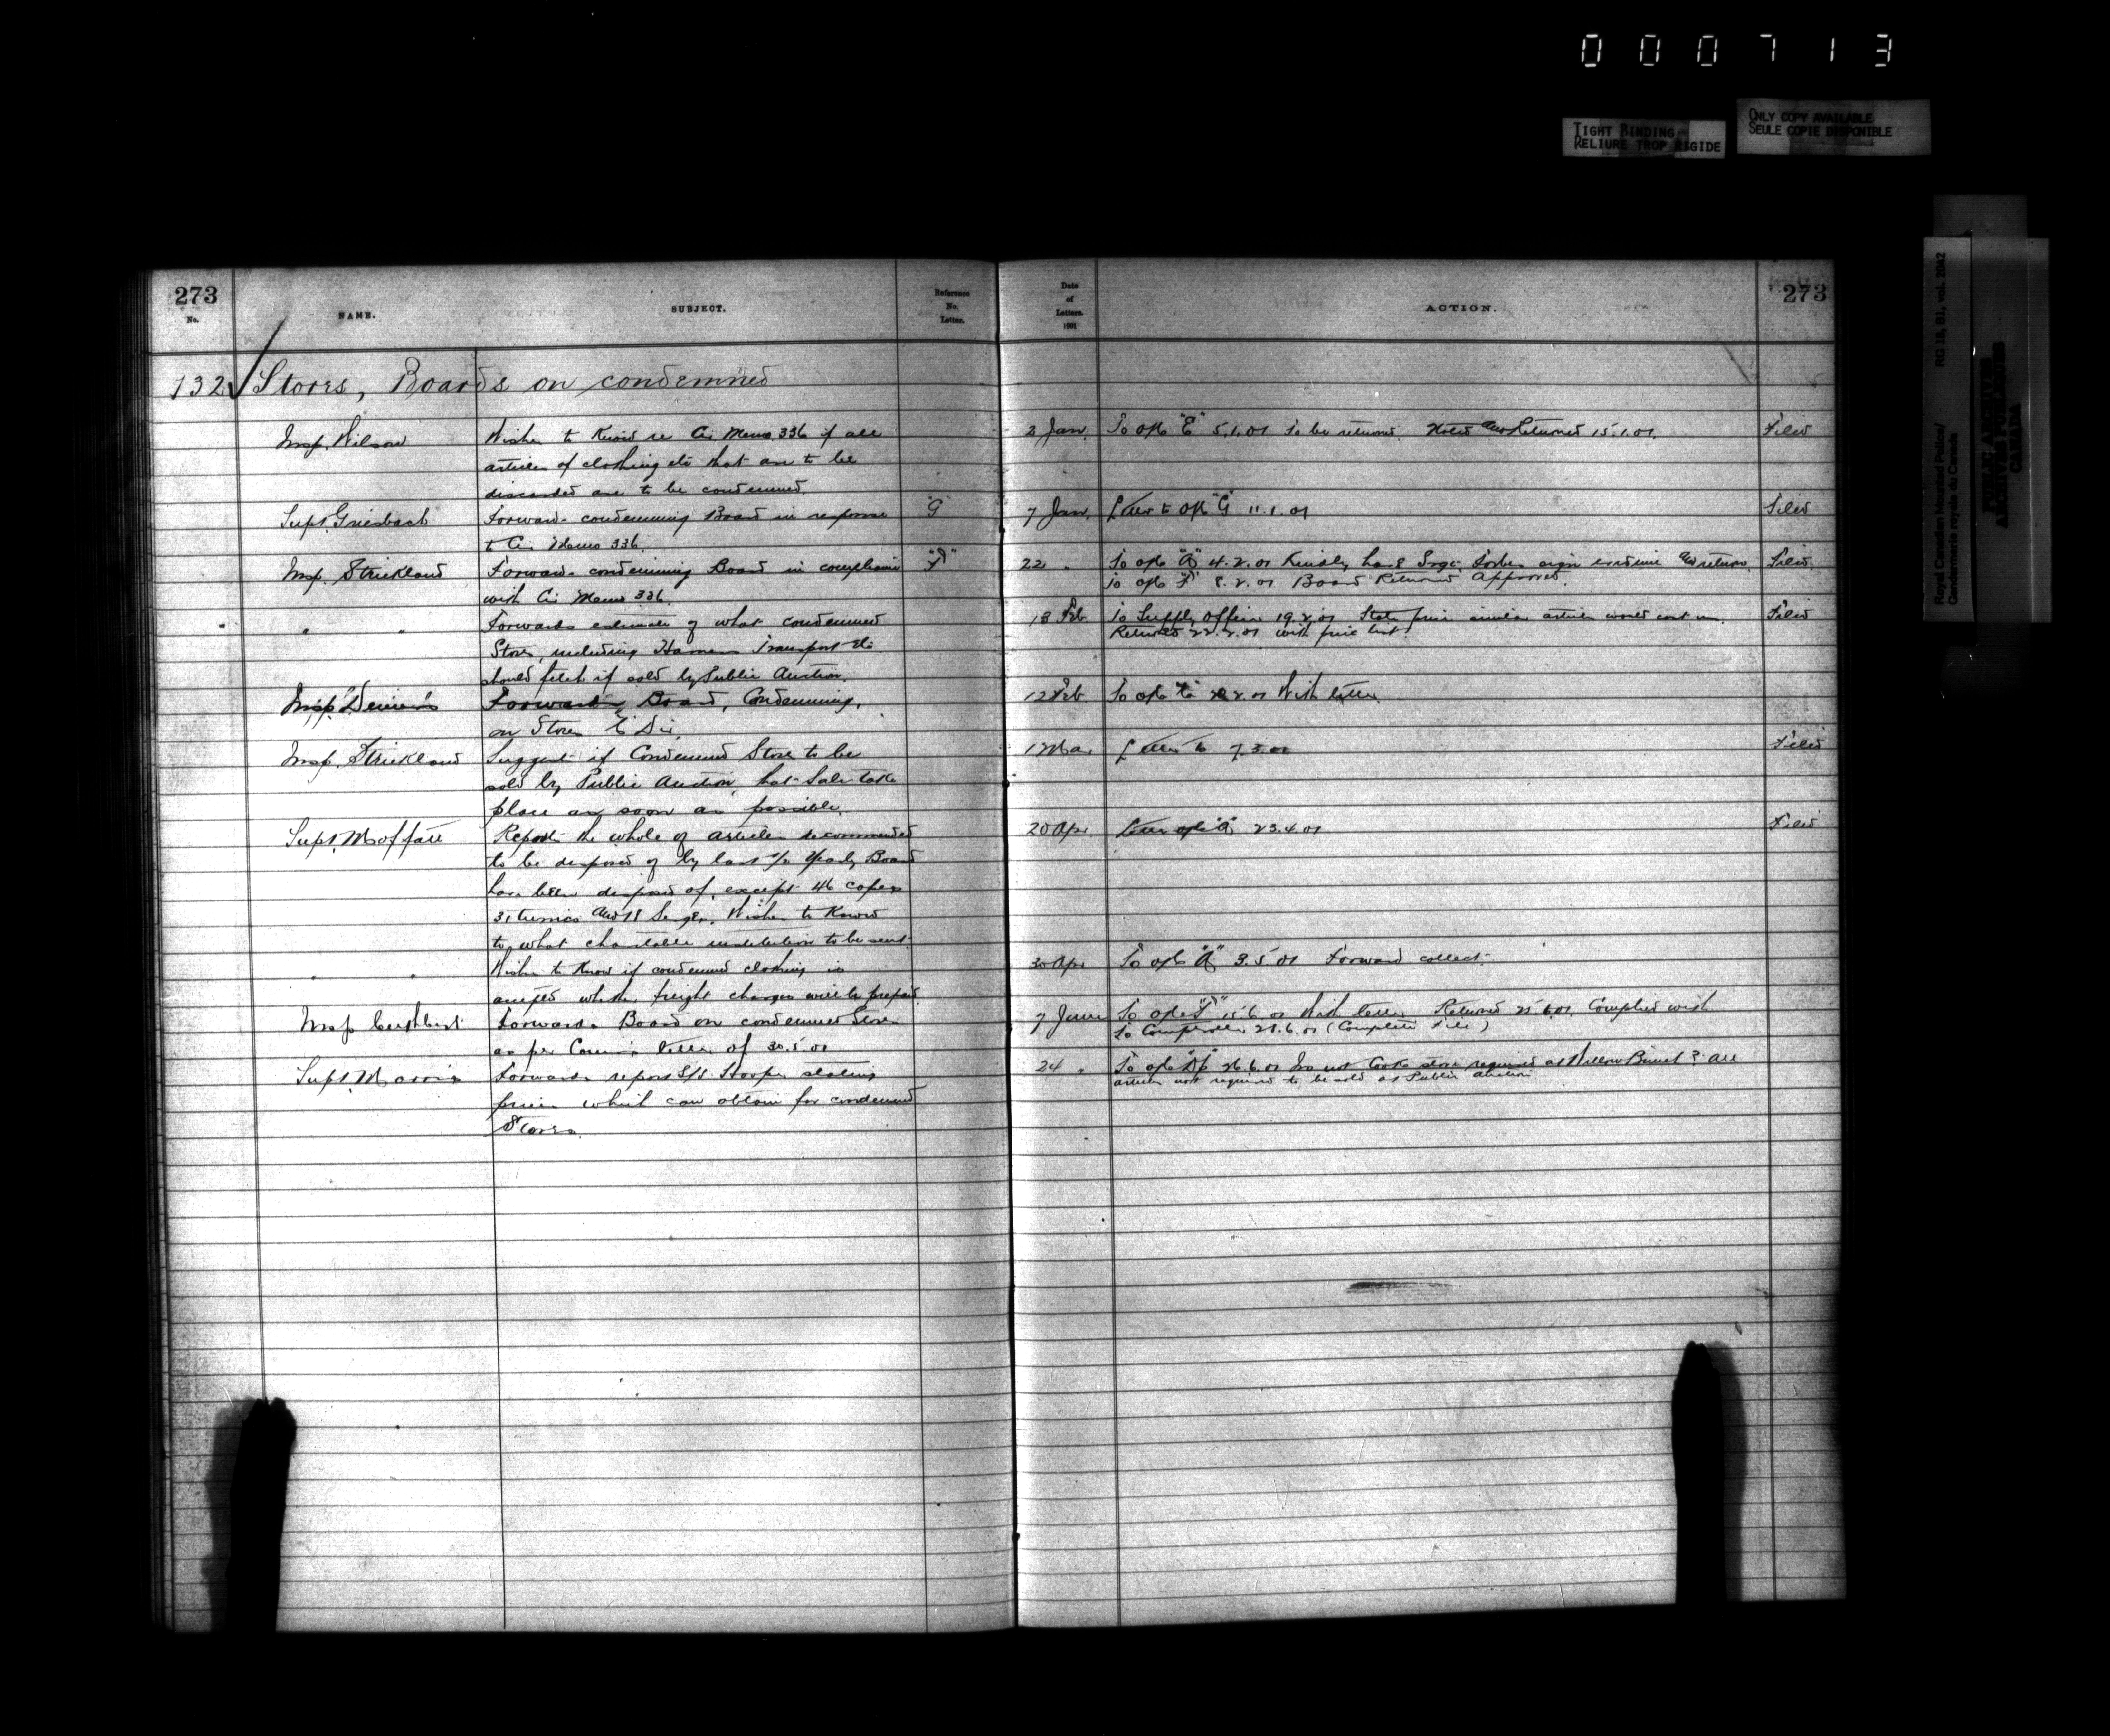 000713
TIGHT BINDING
RELIURE TROP RIGIDE
ONLY COPY AVAILABLE
SEULE COPIE DISPONIBLE
Royal Canadian Mounted Police/
Gendarmerie royale du Canada
RG 18, B1, vol. 2042
PUBLIC ARCHIVES
ARCHIVES PUBLIQUES
CANADA
273
No.
NAME.
SUBJECT.
Reference
No.
Letter.
Date
of
Letters.
1901
ACTION.
273
132 Stores, Boards on condemned
Insp. Wilson Wishes to know re Cir Memo 336 if all 2 Jan. To o/c "E" 5.1.01 To be returned. Noted and Returned 15.1.01. Filed
articles of clothing etc that are to be
discarded are to be condemned.
Supt. Griesbach Forwards condemning Board in response "G" 7 Jan. Letter to o/c "G" 11.1.01 Filed
to Cir Memo 336.
Insp. Strickland Forwards condemning Board in compliance 22 " To o/c 4.2.01 Kindly have sign evidence and return. Filed
with Cir Memo 336. To o/c 8.2.01 Board Returned Approved.
" " Forwards estimate of what condemned 18 Feb To Supply Officer 19.2.01 State price similar articles would cost us. Filed
Returned 22.2.01 with price list
Stores, including Harness Transport etc
should fetch if sold by Public Auction.
Insp. Forwarding Board, Condemning, 12 Feb To o/c 2.01 With letter
on Stores "E" Div.
Insp. Strickland Suggest if Condemned Stores to be 1 Mar. Letter to 7.3.01 Filed
sold by Public Auction, that Sale take
place as soon as possible.
Supt. Moffatt Reports the whole of articles recommended 20 Apr. Letter o/c 23.4.01 Filed
to be disposed of by last 1/2 Yearly Board
have been disposed of, except 46 capes
31 tunics and 18 Serges. Wishes to know
to what charitable institution to be sent.
" " Wishes to know if condemned clothing is 30 Apr. To o/c 3.5.01 Forward collect.
accepted whether freight charges will be prepaid.
Insp Cuthbert Forwards Board on condemned Stores 7 June To o/c 15.6.01 With letter Returned 25.6.01 Complied with
as per Comr's letter of 30.5.01 To Comptroller 28.6.01 (Complete File)
Supt. Morris Forwards report S/S Hooper stating 24 " To o/c 26.6.01 Are not Cooks stove required at Willow Bunch? all
articles not required to be sold at Public auction.
prices which can obtain for condemned
Stores.